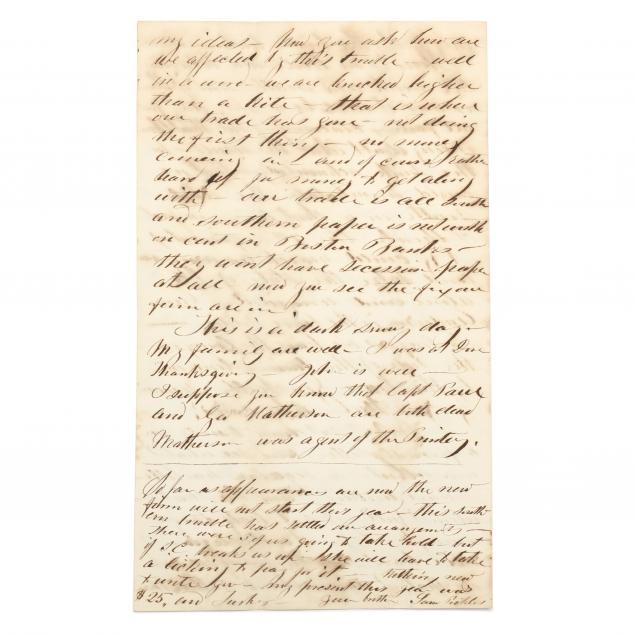 my ideas - Now you ask how are
we affected by this trouble - well
in a word we are knocked higher
than a kite - that is where
our trade has gone - not doing
the first thing - no money
coming in and of course rather
hard up for money to get along
with - our trade is all south
and southern paper is not worth
on cent in Boston Banks -
they wont have Secession paper
at all now you see the fix our
firm are in
This is a dark snowy day -
My family are well - I was at
Thanksgiving - John is well -
I suppose you know that Capt
and Geo Matherson are both dead
Matherson was agent of the Print
So far as appearances are now the new
firm will not start this year - this south
ern trouble has settled our arrangements
There were 3 of us going to take hold - but
if S.C. breaks us up she will have to take
a licking to pay for it - nothing new
to write you - my present this year was
$25, and Turkey - Your brother Sam